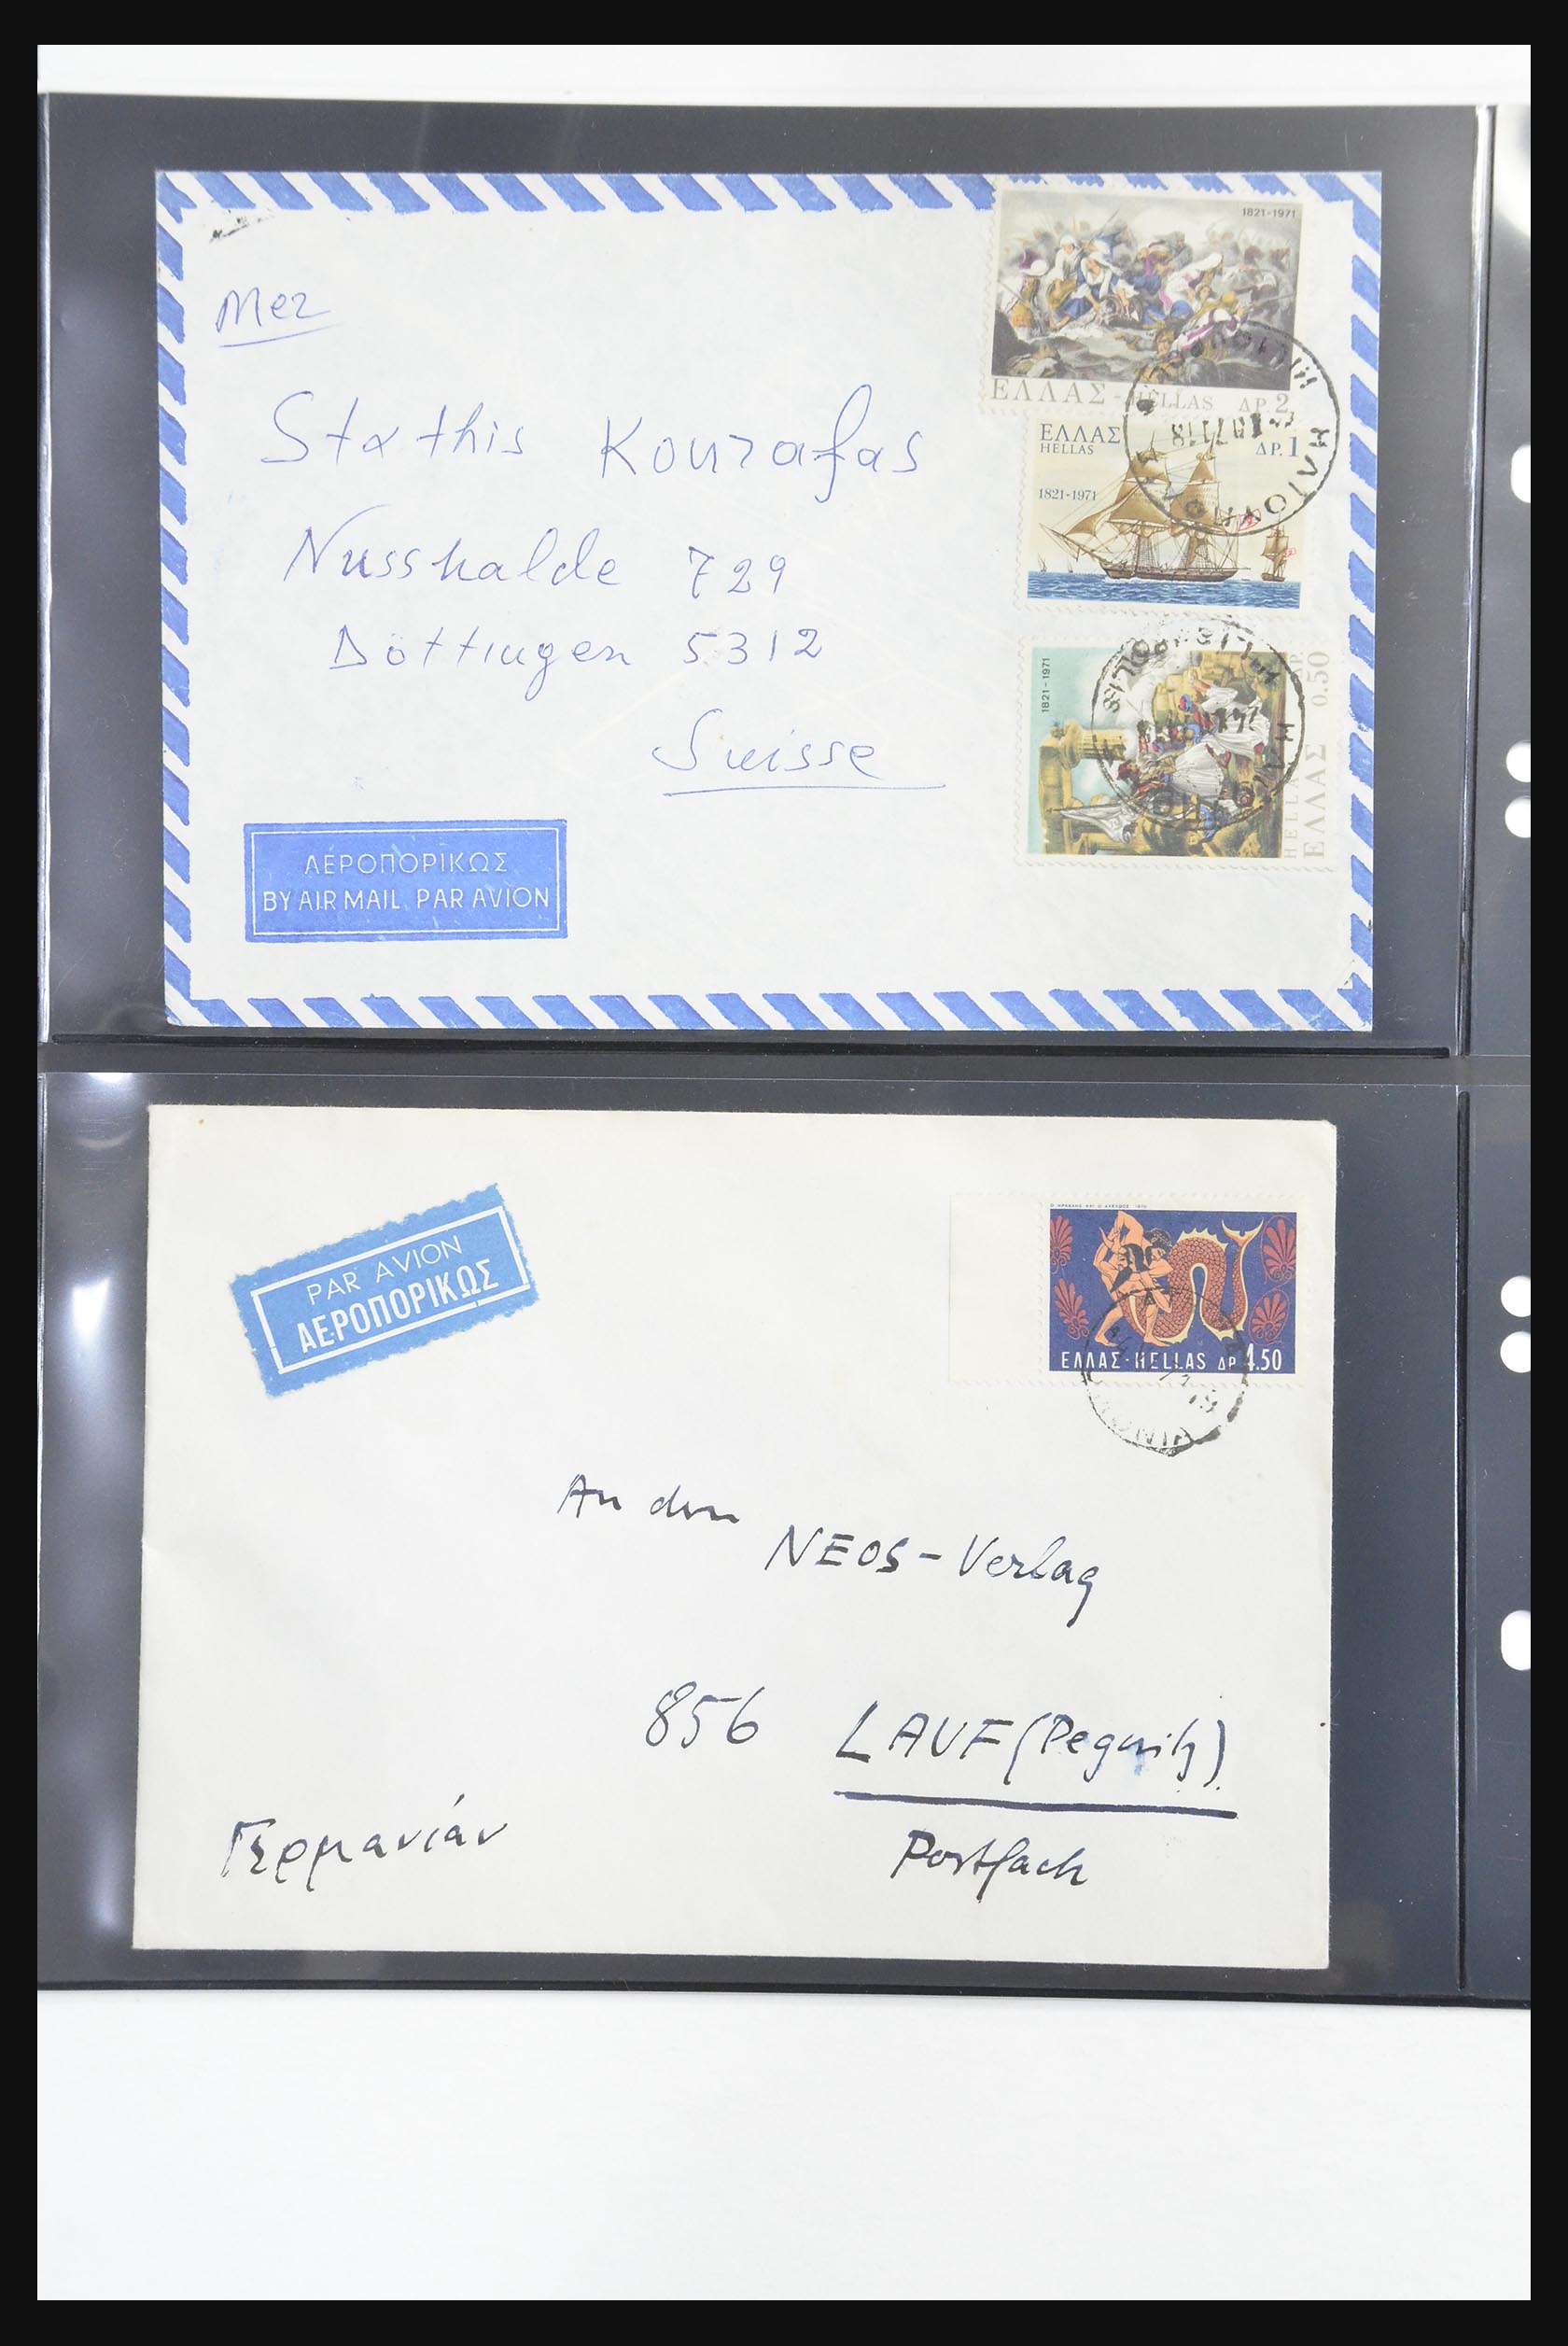 Mez
1821-1971
ΕΛΛΑΣ - HELLAS ΔΡ. 2
Stathis Kouzafas
ΕΛΛΑΣ
HELLAS
ΔΡ. 1
1821-1971
Nusshalde 729
Döttingen 5312
Suisse
1821-1971
HELLAS
ΕΛΛΑΣ 0.50
ΗΛΙΟΥΠΟΛΙΣ
ΑΕΡΟΠΟΡΙΚΩΣ
BY AIR MAIL PAR AVION
PAR AVION
ΑΕΡΟΠΟΡΙΚΩΣ
ΕΛΛΑΣ-HELLAS ΔΡ 4.50
An den
NEOS-Verlag
856 LAUF (Pegnitz)
Γερμανίαν
Postfach